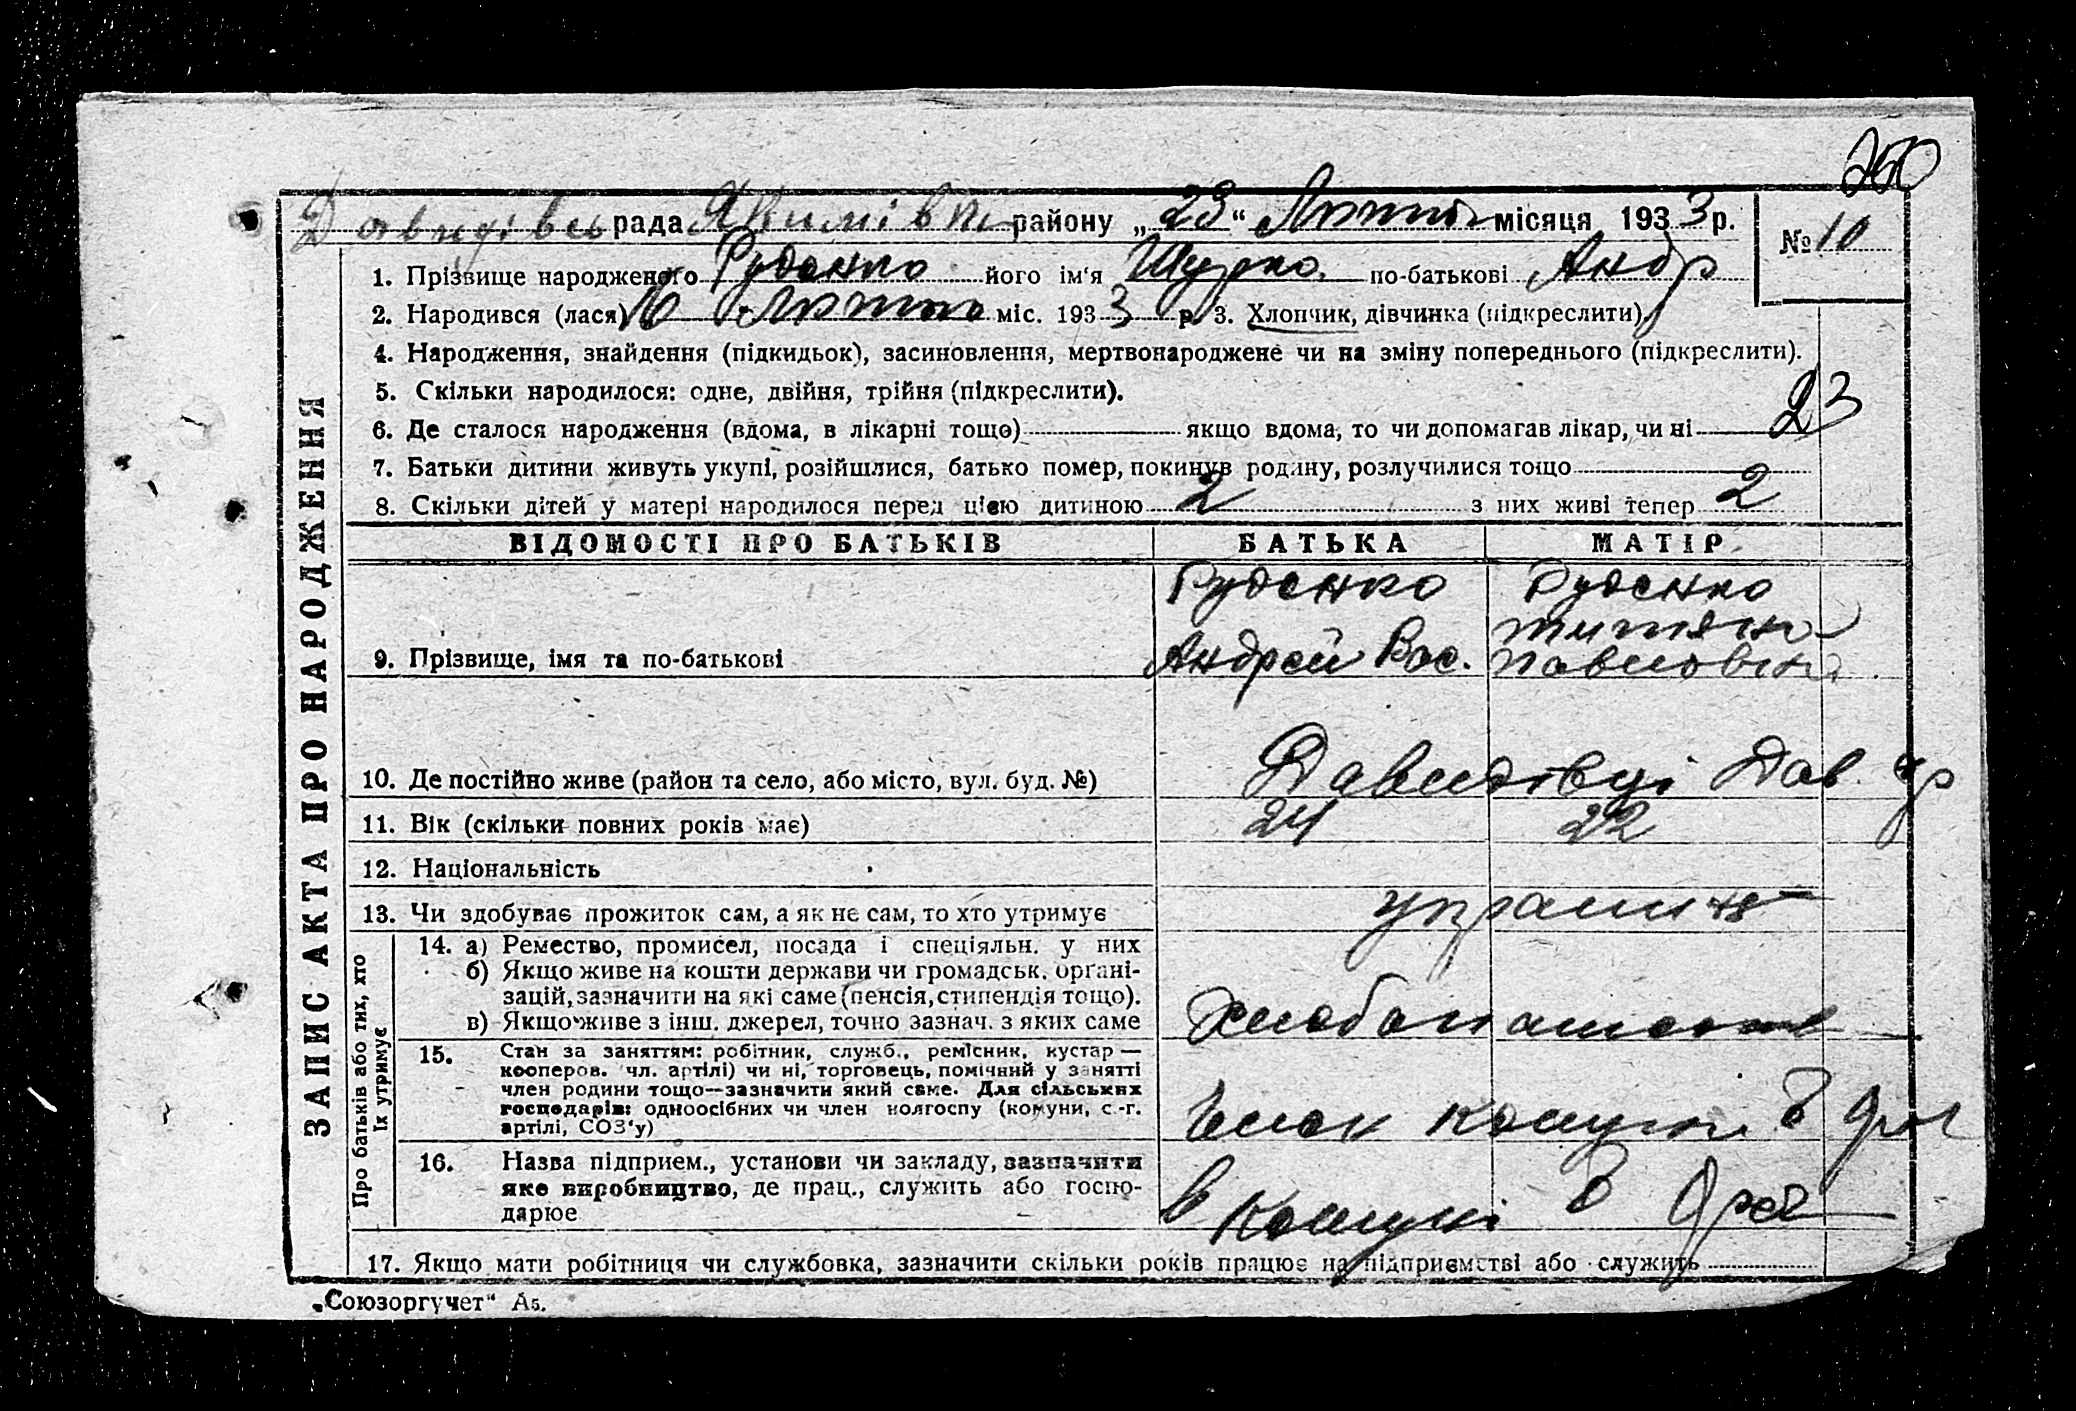 250
Давидівсь рада Якимівськ району „23“ Лютого місяця 1933 р. № 10
1. Прізвище народженого Руденко його ім'я Шурко по-батькові Андр
2. Народився (лася) 10 Лютого міс. 1933 р. 3. Хлопчик, дівчинка (підкреслити).
4. Народження, знайдення (підкидьок), засиновлення, мертвонароджене чи на зміну попереднього (підкреслити).
5. Скільки народилося: одне, двійня, трійня (підкреслити).
6. Де сталося народження (вдома, в лікарні тощо) якщо вдома, то чи допомагав лікар, чи ні 23
7. Батьки дитини живуть укупі, розійшлися, батько помер, покинув родину, розлучилися тощо
8. Скільки дітей у матері народилося перед цією дитиною 2 з них живі тепер 2
ЗАПИС АКТА ПРО НАРОДЖЕННЯ
ВІДОМОСТІ ПРО БАТЬКІВ БАТЬКА МАТІР
Руденко Руденко
9. Прізвище, імя та по-батькові Андрей Вас. Павловна
10. Де постійно живе (район та село, або місто, вул. буд. №) Давидівці Дав.
11. Вік (скільки повних років має) 24 22
12. Національність
13. Чи здобуває прожиток сам, а як не сам, то хто утримує
Про батьків або тих, хто їх утримує
14. а) Ремество, промисел, посада і спеціяльн. у них
б) Якщо живе на кошти держави чи громадськ. органі-
зацій, зазначити на які саме (пенсія, стипендія тощо).
в) Якщо живе з інш. джерел, точно зазнач. з яких саме
15. Стан за заняттям: робітник, служб., ремісник, кустар —
кооперов. чл. артілі) чи ні, торговець, помічний у занятті
член родини тощо—зазначити який саме. Для сільських
господарів: одноосібних чи член колгоспу (комуни, с.-г.
артілі, СОЗ'у) Член комуни
16. Назва підприєм., установи чи закладу, зазначити
яке виробництво, де прац., служить або госпо-
дарює в комуні
17. Якщо мати робітниця чи службовка, зазначити скільки років працює на підприємстві або служить
„Союзоргучет“ А5.